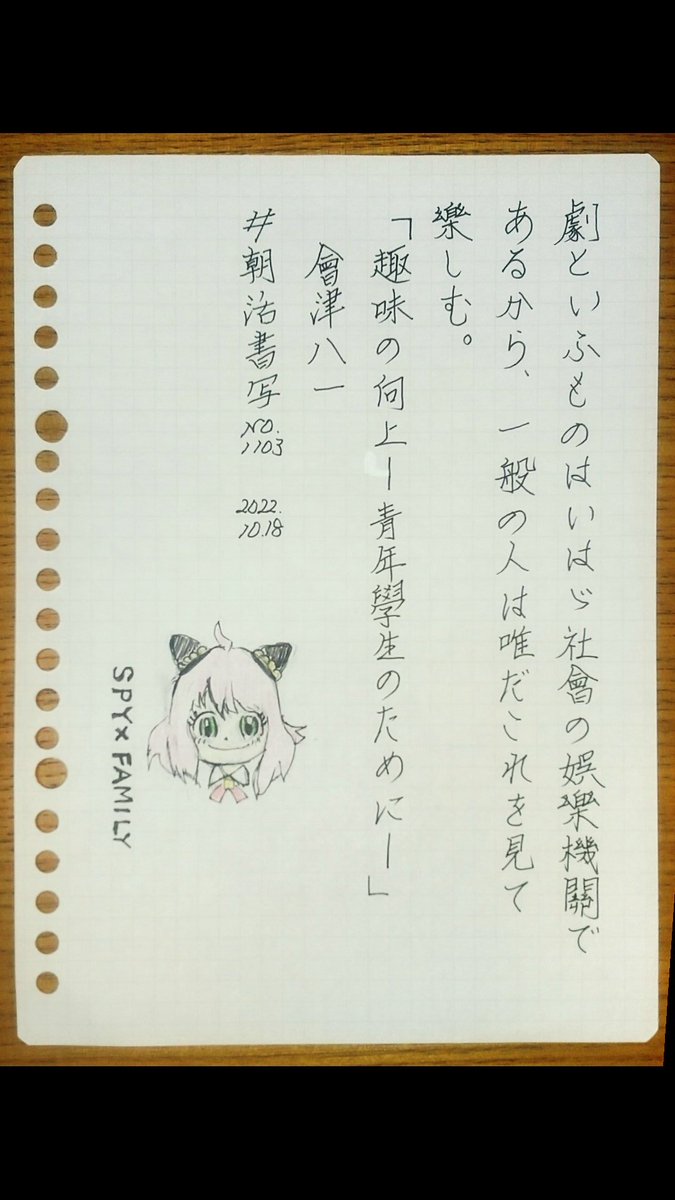 劇といふものはいはゞ社會の娯樂機關で
あるから、一般の人は唯だこれを見て
樂しむ。
「趣味の向上ー青年學生のためにー」
會津八一
#朝活書写 NO.1103 2022.10.18
SPY×FAMILY